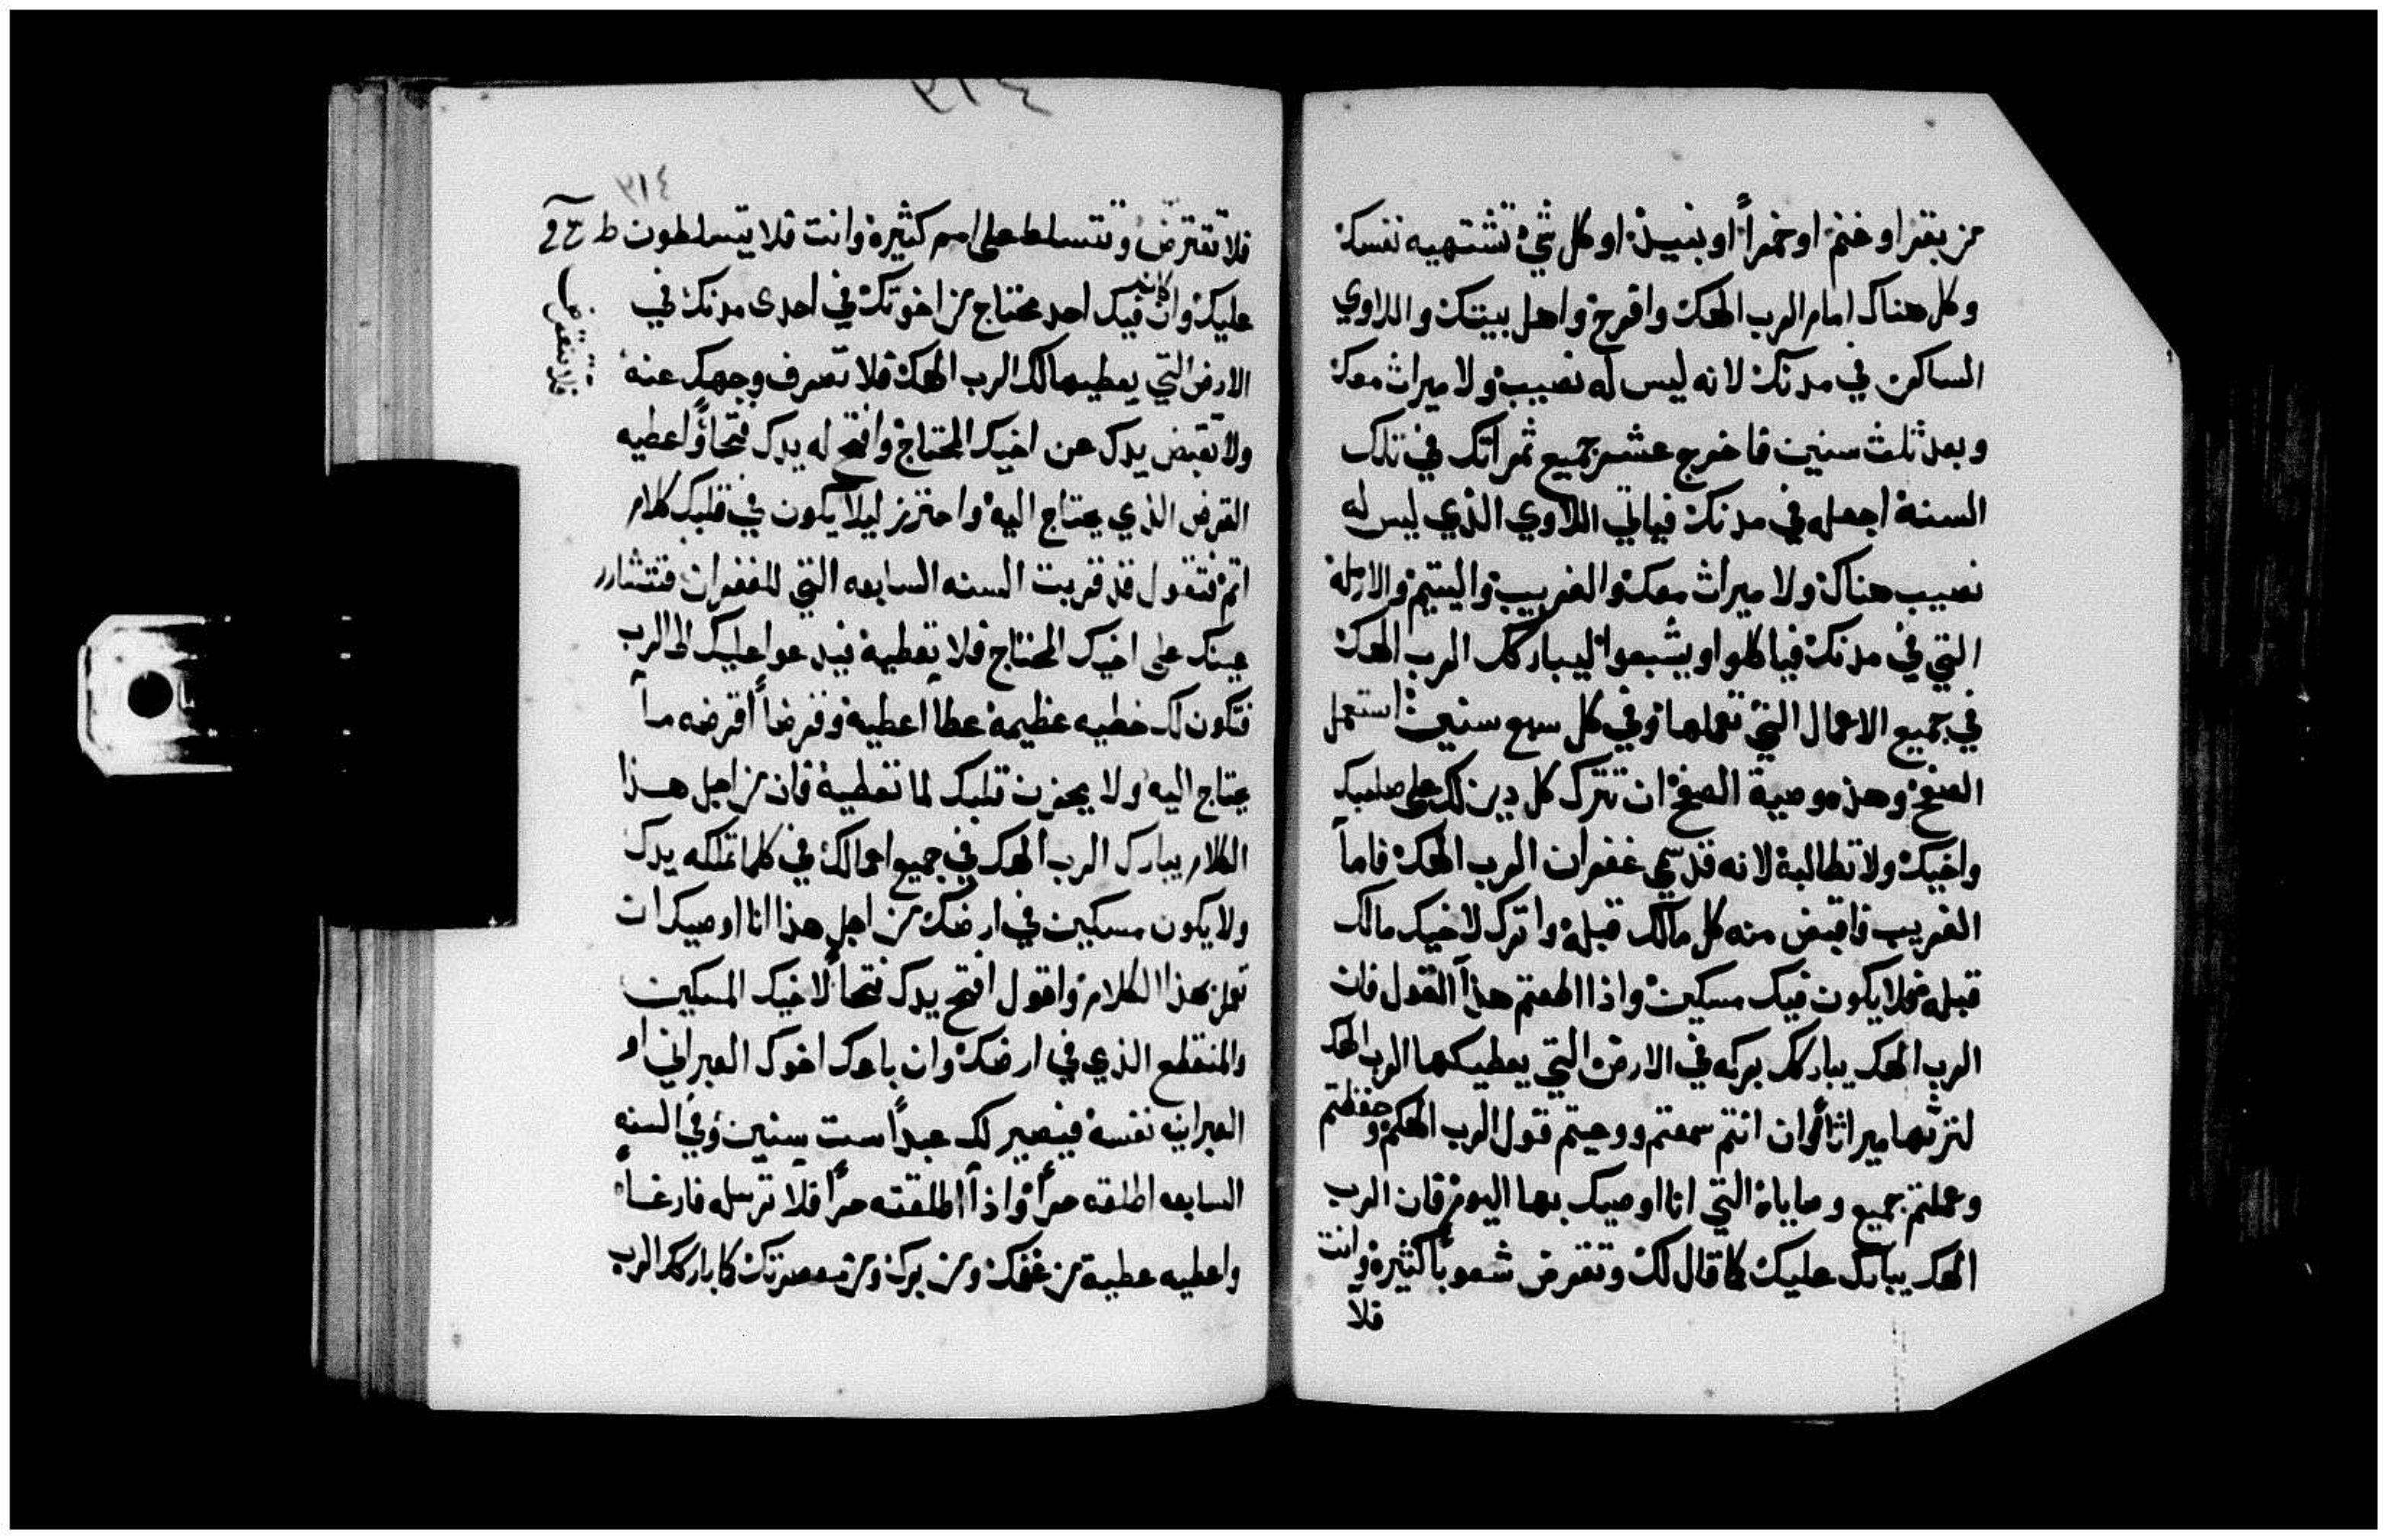 من بقر او غنم او خمراً او نبيذ او كل شي تشتهيه نفسك
وكل هناك امام الرب الهك وافرح واهل بيتك واللاوي
الساكن في مدنك لانه ليس له نصيب ولا ميراث معك
وبعد ثلث سنين فاخرج عشر جميع ثمراتك في تلك
السنة اجعله في مدنك فياتي اللاوي الذي ليس له
نصيب هناك ولا ميراث معك والغريب واليتيم والارملة
التي في مدنك فياكلوا ويشبعوا ليباركك الرب الهك
في جميع الاعمال التي تعملها وفي كل سبع سنين استعمل
الصفح وهذه وصية الصفح ان تترك كل دين لك على صاحبك
واخيك ولا تطالبه لانه قد سمي غفران الرب الهك فاما
الغريب فاقبض منه كل مالك قبله واترك لاخيك مالك
قبله فلا يكون فيك مسكين واذا اطعتم هذا القول فان
الرب الهك يباركك بركه في الارض التي يعطيكها الرب الهك
لترثها ميراثاً وان انتم سمعتم ووعيتم قول الرب الهكم وحفظتم
وعملتم جميع وصاياه التي انا اوصيك بها اليوم فان الرب
الهك يبارك عليك كما قال لك وتقرض شعوباً كثيرة وانت
فلا
٣١٤
فلا تقترض وتتسلط على امم كثيرة وانت فلا يتسلطون
عليك وان كان فيك احد محتاج من اخوتك في احدى مدنك في
الارض التي يعطيها لك الرب الهك فلا تصرف وجهك عنه
ولا تقبض يدك عن اخيك المحتاج وافتح له يدك فتحاً واعطيه
القرض الذي يحتاج اليه واحترز ليلا يكون في قلبك كلام
اثم فتقول قد قربت السنه السابعه التي للغفران فتتشارر
عينك على اخيك المحتاج فلا تعطيه فيدعوا عليك الى الرب
فتكون لك خطيه عظيمة عطا اعطيه وقرضاً اقرضه ما
يحتاج اليه ولا يحزن قلبك لما تعطيه فان من اجل هذا
الكلام يبارك الرب الهك في جميع اعمالك في كلما تملكه يدك
ولا يكون مسكين في ارضك من اجل هذا انا اوصيك ان
تعمل بهذا الكلام واقول افتح يدك فتحاً لاخيك المسكين
والمنقطع الذي في ارضك وان باعك اخوك العبراني او
العبرانيه نفسه فيصير لك عبداً ست سنين وفي السنه
السابعه اطلقه حراً واذا اطلقته حراً فلا ترسله فارغاً
واعطيه عطية من غنمك ومن برك ومن معصرتك كما باركك الرب